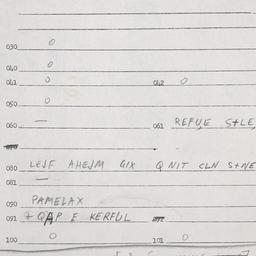 030 O
040 O
041 O 042 O
050 O
060 — 061
080 LEJF AHEJM GIX Q NIT CLN S+NE
081 —
090 PAMELAX
091 + QAP E KERFUL
100 O 101 O